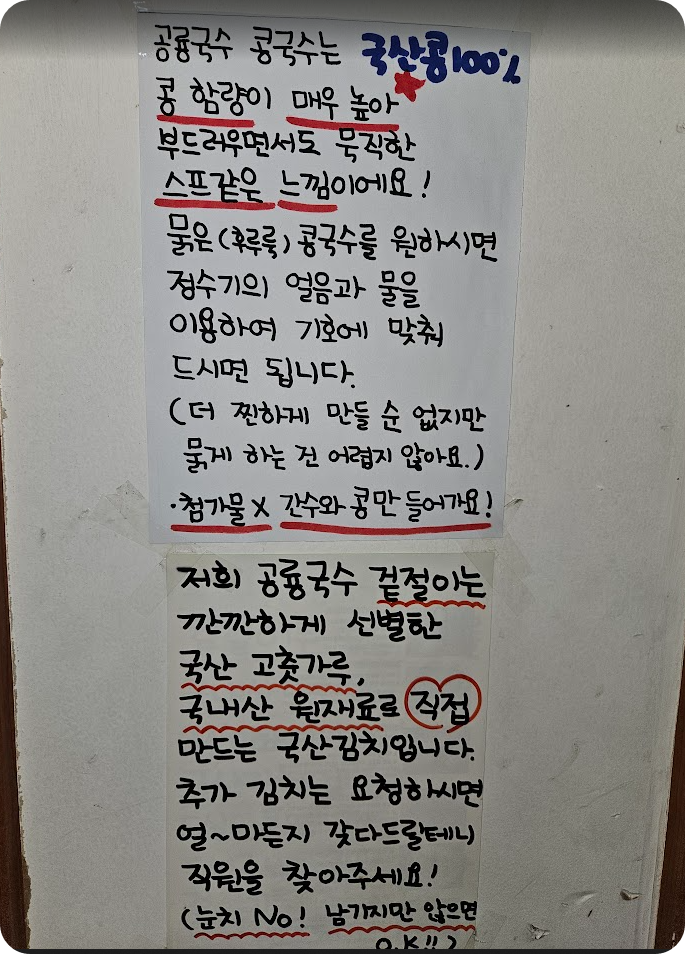 공룡국수 콩국수는 국산콩100%
콩 함량이 매우 높아
부드러우면서도 묵직한
스프같은 느낌이에요!
묽은(후루룩) 콩국수를 원하시면
정수기의 얼음과 물을
이용하여 기호에 맞춰
드시면 됩니다.
(더 찐하게 만들 순 없지만
묽게 하는 건 어렵지 않아요.)
·첨가물X 간수와 콩만 들어가요!
저희 공룡국수 겉절이는
깐깐하게 선별한
국산 고춧가루,
국내산 원재료로 직접
만드는 국산김치입니다.
추가 김치는 요청하시면
얼~마든지 갖다드릴테니
직원을 찾아주세요!
(눈치 No! 남기지만 않으면
O.K!!)